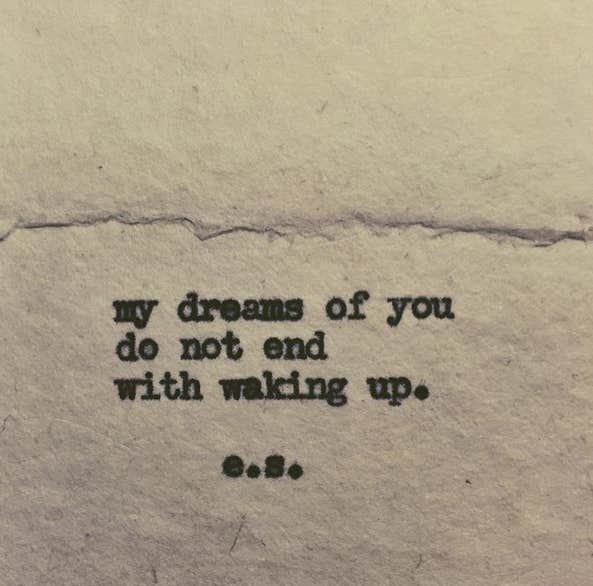 my dreams of you
do not end
with waking up.
e.s.